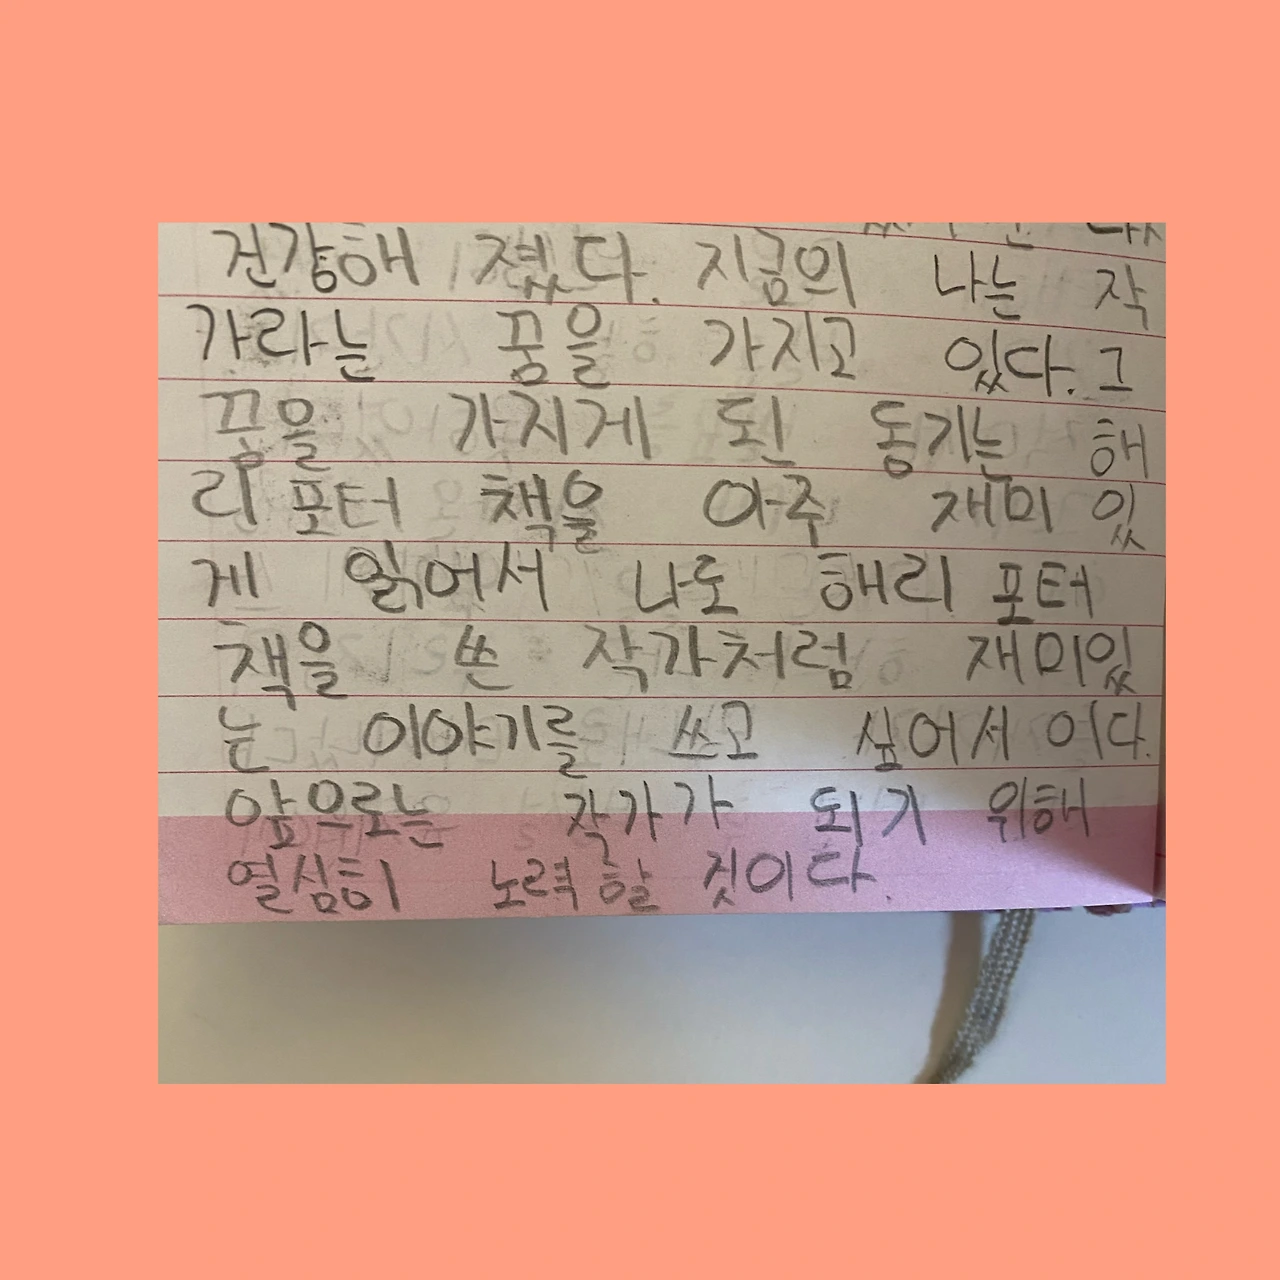 건강해 졌다. 지금의 나는 작
가라는 꿈을 가지고 있다. 그
꿈을 가지게 된 동기는 해
리포터 책을 아주 재미 있
게 읽어서 나도 해리 포터
책을 쓴 작가처럼 재미있
는 이야기를 쓰고 싶어서 이다.
앞으로는 작가가 되기 위해
열심히 노력할 것이다.